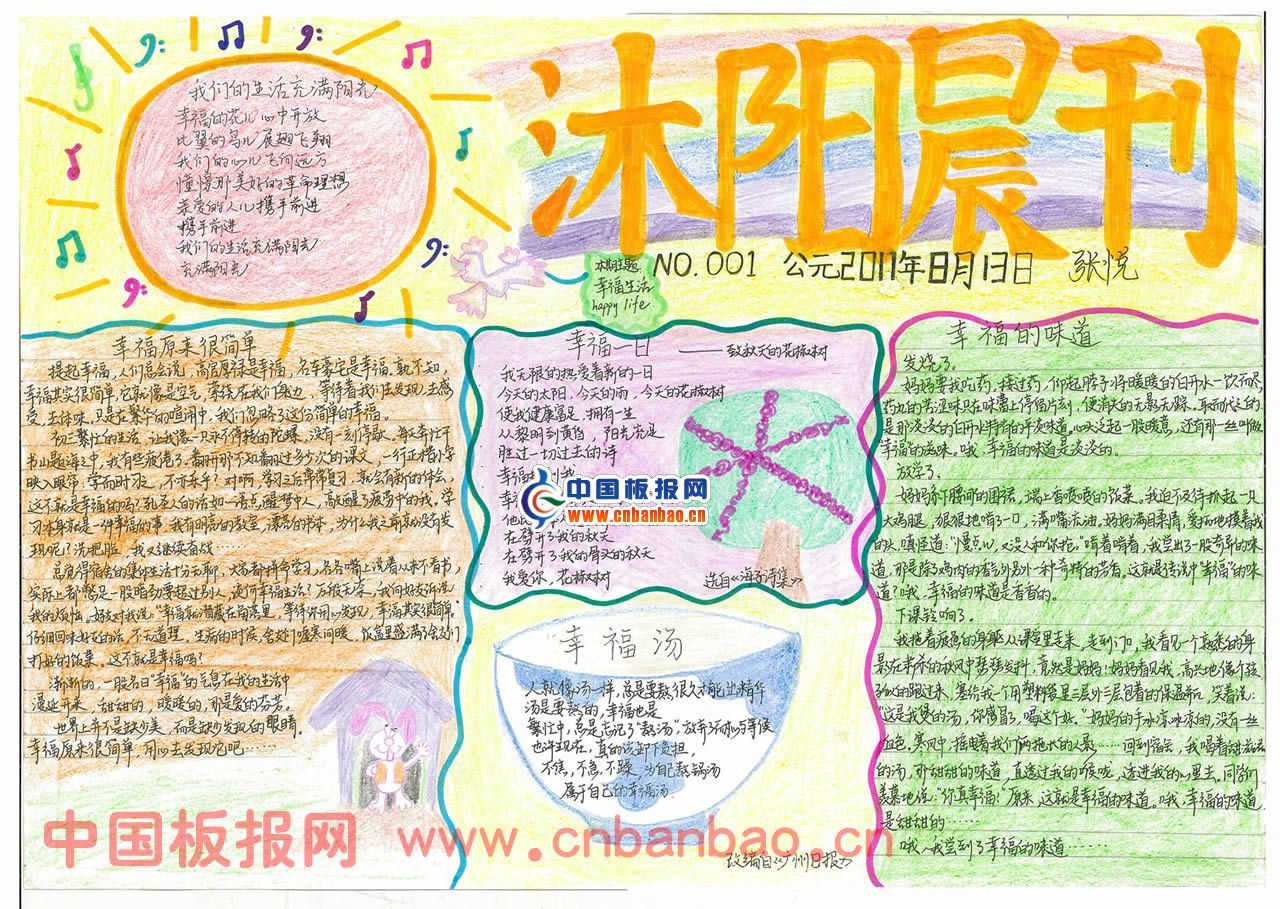 沐阳晨刊
NO.001 公元2011年8月13日 张悦
本期主题
幸福生活
happy life
我们的生活充满阳光
幸福的花儿心中开放
比翼的鸟儿展翅飞翔
我们的心儿飞向远方
憧憬那美好的革命理想
亲爱的人儿携手前进
携手前进
我们的生活充满阳光
充满阳光
幸福原来很简单
提起幸福，人们总会说，高官厚禄是幸福，名车豪宅是幸福，孰不知，
幸福其实很简单，它就像是空气，萦绕在我们身边，等待着我们去发现，去感
受，去体味，只是在繁华的喧闹中，我们忽略了这份简单的幸福。
初三繁忙的生活，让我像一只永不停转的陀螺，没有一刻停歇，每天奔忙于
书山题海之中，我有些疲倦了。翻开那不知翻过多少次的课文，一行正楷小字
映入眼帘，"学而时习之，不亦乐乎？"对啊，学习之后常常复习，就会有新的体会，
这不就是幸福的吗？孔圣人的话如一语点醒梦中人，敲醒了疲劳中的我，学
习本身就是一件幸福的事，我有明亮的教室，漂亮的书本，为什么我之前就没有发
现呢？洗把脸，我又继续奋战……
总觉得宿舍的集体生活十分无聊，大家都拼命学习，各各嘴上说着从来不看书，
实际上都憋足一股暗劲要超过别人，
我的烦恼，好友对我说："幸福就潜藏在角落里，等待你用心发现，幸福其实很简单"
仔细回味好友的话，不无道理，生病的时候，舍友们嘘寒问暖，饭盒里盛满了舍友们
打好的饭菜，这不就是幸福吗？
渐渐的，一股名曰"幸福"的气息在我的生活中
漫延开来，甜甜的，暖暖的，那是爱的芬芳。
世界上并不是缺少美，而是缺少发现的眼睛。
幸福原来很简单，用心去发现它吧……
幸福一日 ——致秋天的花楸树
我无限的热爱着新的一日
今天的太阳，今天的雨，今天的花楸树
使我健康富足，拥有一生
从黎明到黄昏，阳光充足
胜过一切过去的诗
幸福找到我
幸福
他比
在劈开了我的秋天
在劈开了我的骨头的秋天
我爱你，花楸树
选自《海子诗集》
中国板报网
www.cnbanbao.cn
幸福汤
人就像汤一样，总是要熬很久才能出精华
汤是要熬的，幸福也是
繁忙中，总是忘记了"熬汤"，放弃了耐心与等候
也许现在，真的该卸下负担，
不焦，不急，不躁，为自己熬锅汤
属于自己的幸福汤.
改编自《广州日报》
幸福的味道
发烧了。
妈妈要我吃药，接过药，仰起脖子将暖暖的白开水一饮而尽，
药丸的苦涩味只在味蕾上停留片刻，便消失的无影无踪。取而代之的
是那淡淡的白开水特有的平淡味道，心头泛起一股暖意，还有那一丝叫做
幸福的滋味。哦，幸福的味道是淡淡的。
放学了。
妈妈系下腰前的围裙，端上香喷喷的饭菜。我迫不及待抓起一只
大鸡腿，狠狠地啃了一口，满嘴流油。妈妈满目柔情，笑而地摸着我
的头，嗔怪道："慢点儿，又没人和你抢。"啃着啃着，我尝出了一股奇异的味
道，那是除了鸡肉的香气外另外一种奇特的芳香。这就是传说中"幸福"的味
道？哦，幸福的味道是香香的。
下课铃响了。
我拖着疲惫的身躯从课堂里走来，走到门口，我看见一个熟悉的身
影在萧杀的秋风中瑟瑟发抖，竟然是妈妈！妈妈看见我，高兴地像个孩
子似的跑过来，塞给我一个用塑料袋里三层外三层包着的保温瓶，笑着说：
"这是我煲的汤，你感冒了，喝这个好。"妈妈的手冰凉冰凉的，没有一丝
血色，寒风中，摇曳着我们俩拖长的人影……回到宿舍，我喝着甜滋滋
的汤，那甜甜的味道，直透过我的喉咙，透进我的心里去。同学们
羡慕地说："你真幸福！"原来，这就是幸福的味道。哦，幸福的味道
是甜甜的……
哦，我尝到了幸福的味道……
中国板报网 www.cnbanbao.cn